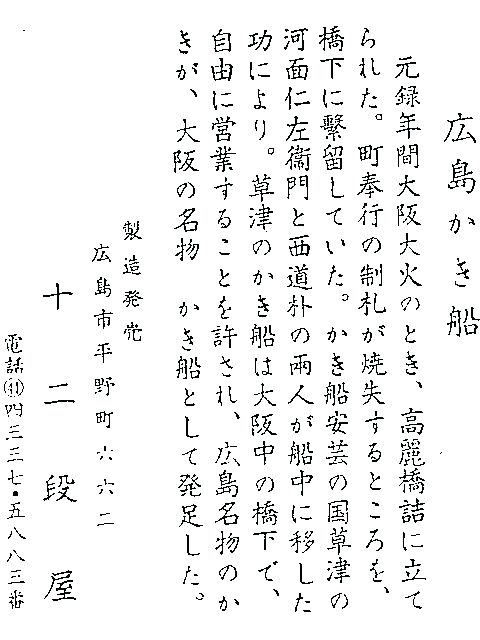 広島かき船
元録年間大阪大火のとき、高麗橋詰に立て
られた。町奉行の制札が焼失するところを、
橋下に繋留していた。かき船安芸の国草津の
河面仁左衛門と西道朴の両人が船中に移した
功により。草津のかき船は大阪中の橋下で、
自由に営業することを許され、広島名物のか
きが、大阪の名物　かき船として発足した。
製造発売
広島市平野町六六二
十二段屋
電話㊶四三三七・五八八三番